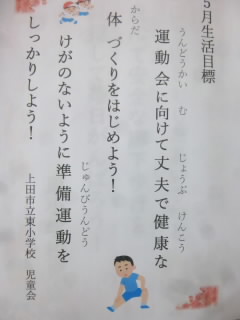 5月生活目標
運動会に向けて丈夫で健康な
うんどうかい む じょうぶ けんこう
体づくりをはじめよう！
からだ
けがのないように準備運動を
じゅんびうんどう
しっかりしよう！
上田市立東小学校 児童会